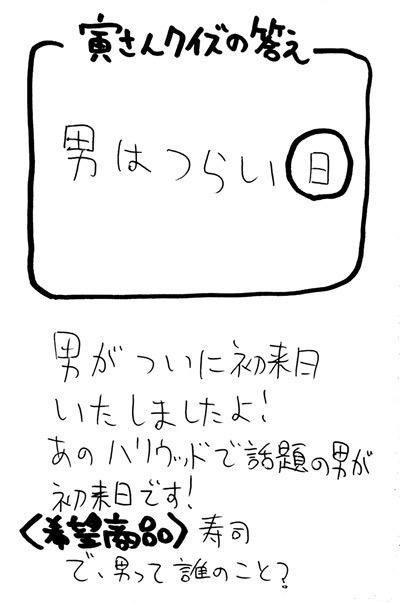 寅さんクイズの答え
男はつらい日
男がついに初来日
いたしましたよ!
あのハリウッドで話題の男が
初来日です!
〈希望商品〉寿司
で、男って誰のこと?